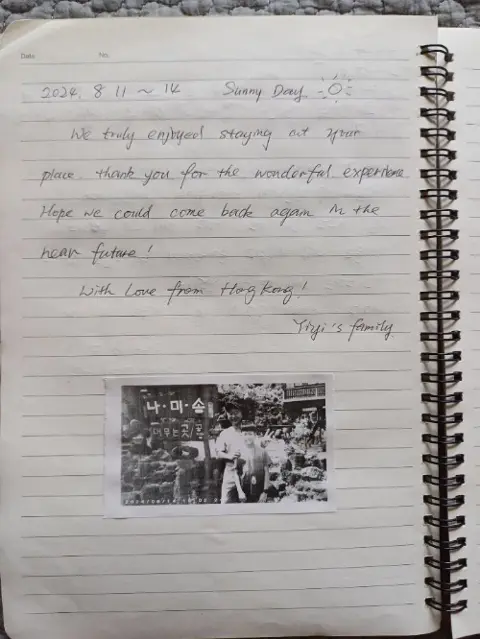 Date
No.
2024. 8 11 ~ 14 Sunny Day
We truly enjoyed staying at your
place. thank you for the wonderful experience
Hope we could come back again in the
near future!
With Love from Hong Kong!
Yiyi's family
나·미·송
머무는곳/